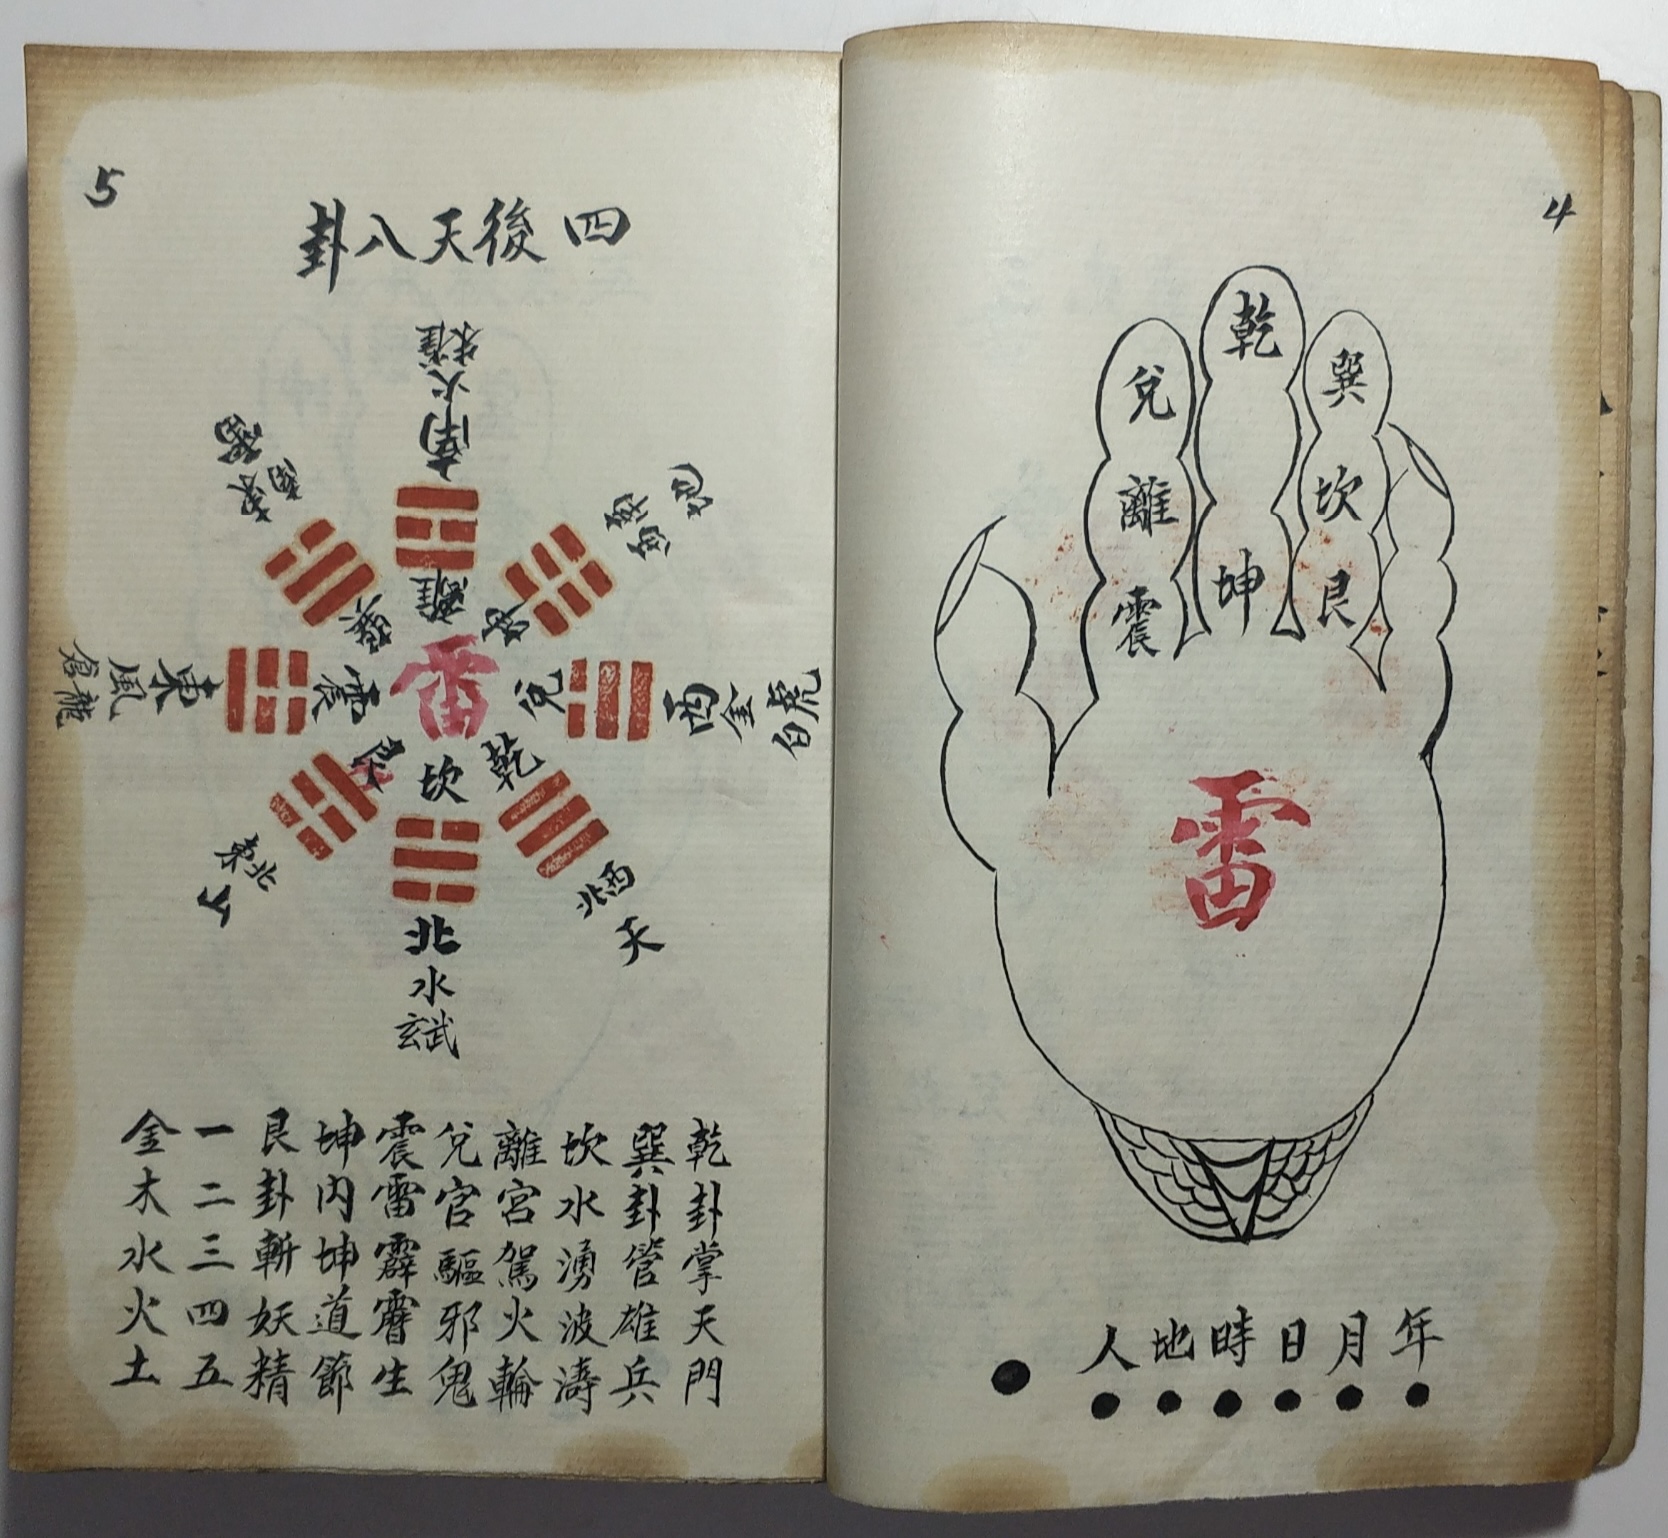 4
乾
兌
巽
離
坎
震
坤
艮
雷
年月日時地人
5
四後天八卦
朱雀
火
南
離
東南
巽
坤
地
雷
震
東
風
倉龍
兌
西
金
白虎
艮
東北
坎
北
水
玄武
乾
西北
天
乾卦掌天門
巽卦管雄兵
坎水湧波濤
離宮駕火輪
兌官驅邪鬼
震雷霹靂生
坤內坤道節
艮卦斬妖精
一二三四五
金木水火土